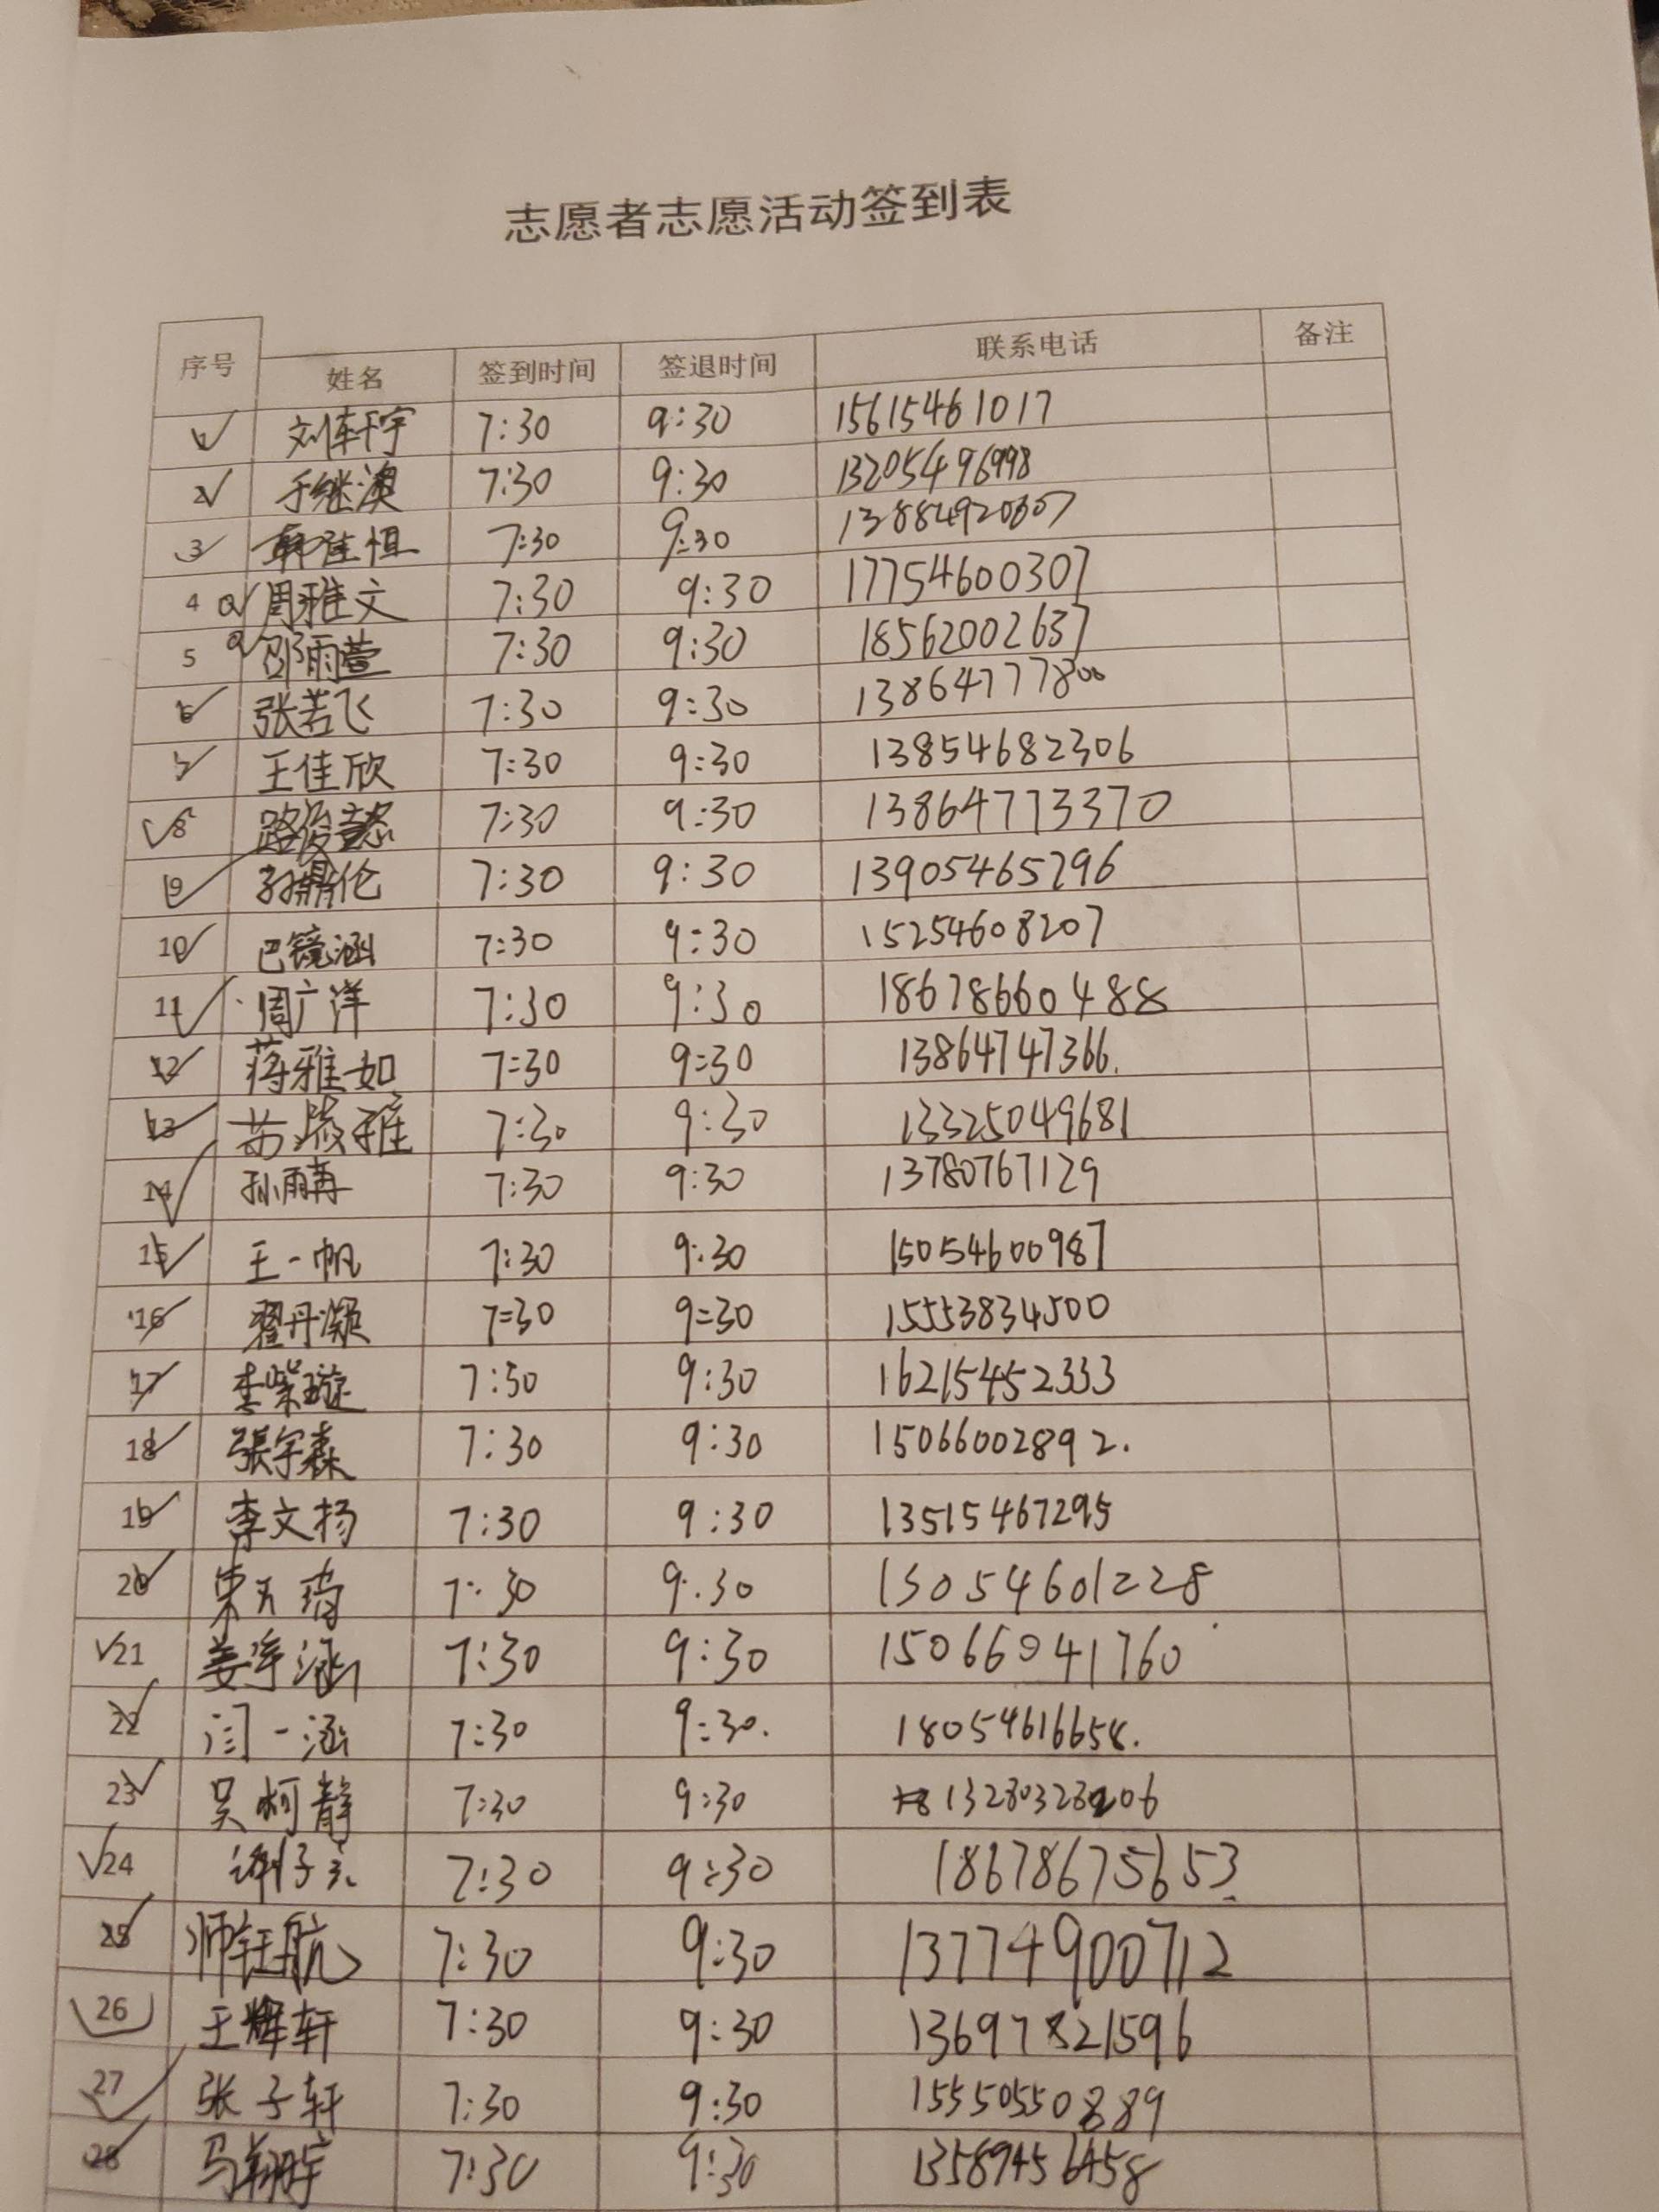 志愿者志愿活动签到表
序号 姓名 签到时间 签退时间 联系电话 备注
1 刘轩宇 7:30 9:30 15615461017
2 于继澳 7:30 9:30 13205496998
3 韩佳恒 7:30 9:30 13884920607
4 周雅文 7:30 9:30 17754600307
5 邵雨萱 7:30 9:30 18562002637
6 张若飞 7:30 9:30 13864777800
7 王佳欣 7:30 9:30 13854682306
8 路俊懿 7:30 9:30 13864773370
9 孙鼎伦 7:30 9:30 13905465296
10 巴镜涵 7:30 9:30 15254608207
11 周广洋 7:30 9:30 18678660488
12 蒋雅如 7:30 9:30 13864747366.
13 苏淑雅 7:30 9:30 13325049681
14 孙雨苒 7:30 9:30 13780767129
15 王一帆 7:30 9:30 15054600987
16 翟丹凝 7=30 9=30 15553834500
17 李紫璇 7:30 9:30 16215452333
18 張宇森 7:30 9:30 15066002892.
19 李文扬 7:30 9:30 13515467295
20 7:30 9:30 13054601228
21 姜淳涵 7:30 9:30 15066041760
22 闫一涵 7:30 9:30. 18054616658.
23 吴柯静 7:30 9:30
24 谢子言 7:30 9:30 18678675653
25 师钰航 7:30 9:30 13774900712
26 王辉轩 7:30 9:30 13697821596
27 张子轩 7:30 9:30 15550550889
28 马翔宇 7:30 9:30 13589456458